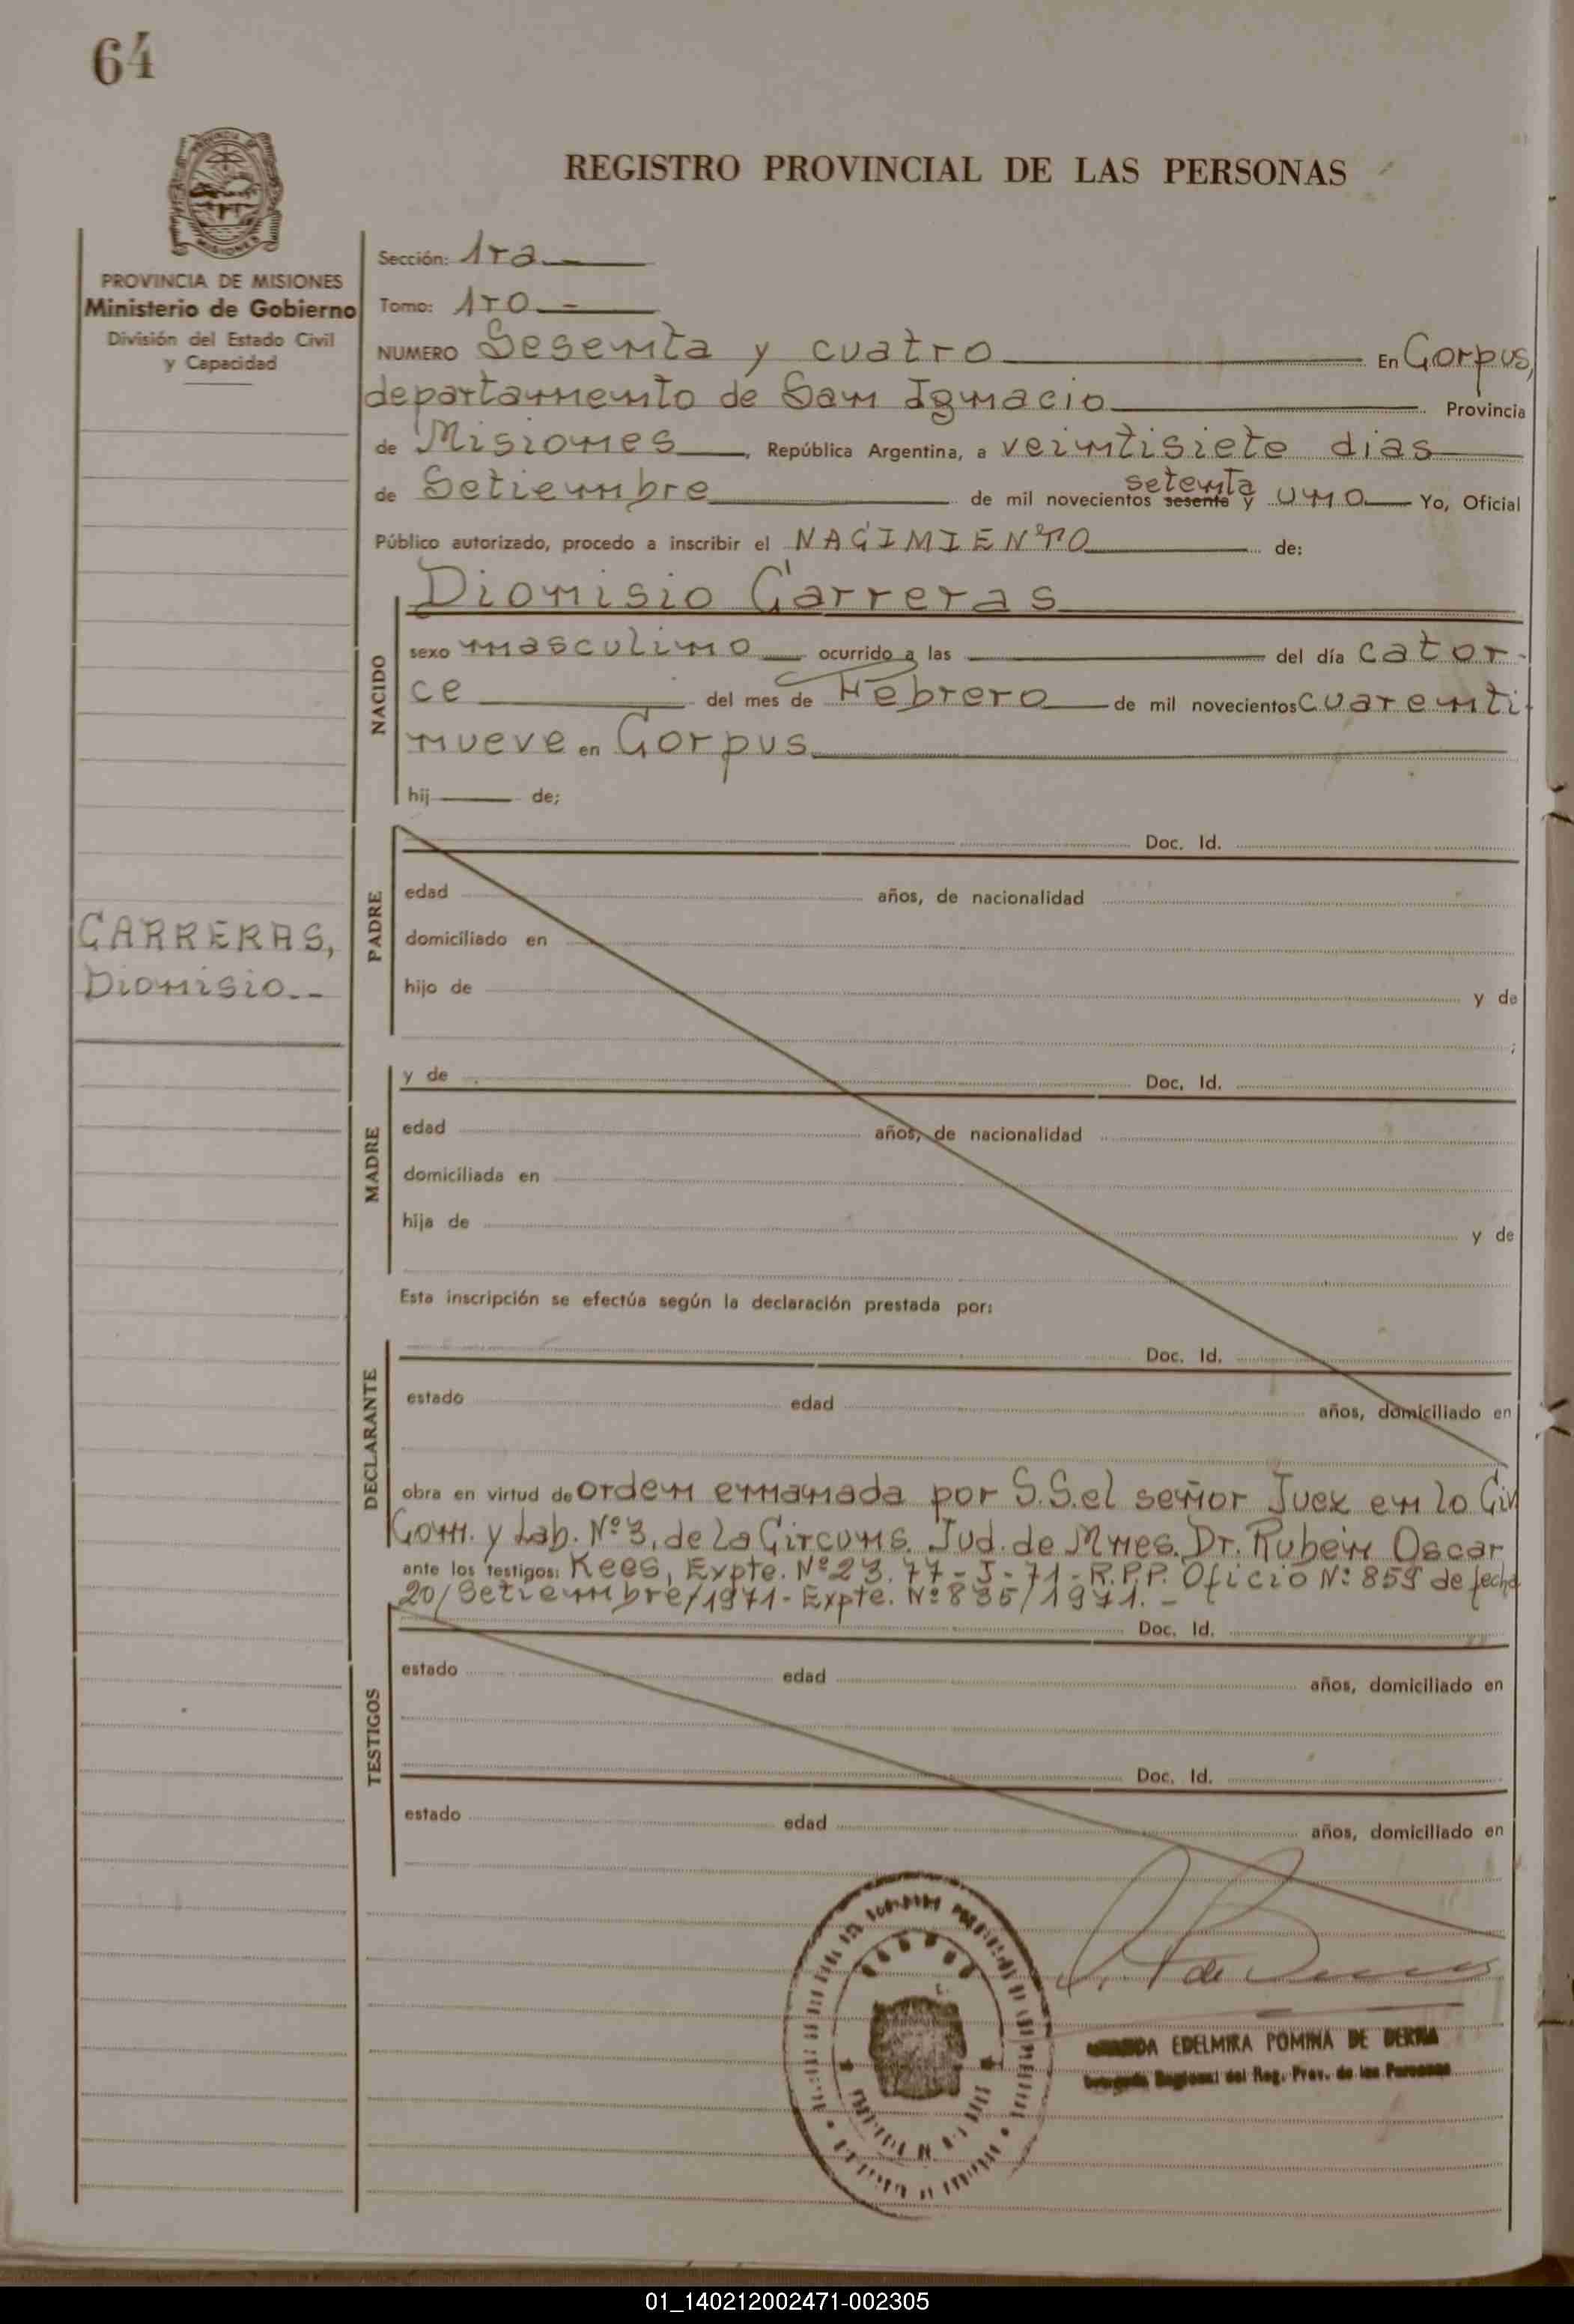 64
REGISTRO PROVINCIAL DE LAS PERSONAS
PROVINCIA DE MISIONES
Ministerio de Gobierno
División del Estado Civil
y Capacidad
Sección: 1ra
Tomo: 1ro
NUMERO Sesenta y cuatro En Corpus,
departamento de San Ignacio Provincia
de Misiones, República Argentina, a veintisiete dias
de Setiembre de mil novecientos sesenta setenta y uno Yo, Oficial
Público autorizado, procedo a inscribir el NACIMIENTO de:
Dionisio Carreras
NACIDO
sexo masculino ocurrido a las del día cator-
ce del mes de Febrero de mil novecientos cuarenti
nueve en Corpus
hij de;
CARRERAS,
Dionisio.--
PADRE
Doc. Id.
edad años, de nacionalidad
domiciliado en
hijo de y de
;
MADRE
y de Doc. Id.
edad años, de nacionalidad
domiciliada en
hija de y de
Esta inscripción se efectúa según la declaración prestada por:
DECLARANTE
Doc. Id.
estado edad años, domiciliado en
obra en virtud de orden emanada por S.S. el señor Juez en lo Civ
Com. y Lab. Nº 3, de la Circuns. Jud. de Mnes. Dr. Rubén Oscar
ante los testigos: Kees, Expte. Nº 23.77-J-71-R.P.P. Oficio Nº 859 de fecha
20/Setiembre/1971- Expte. Nº 835/1971.-
TESTIGOS
Doc. Id.
estado edad años, domiciliado en
Doc. Id.
estado edad años, domiciliado en
EDELMIRA POMINA DE
Regional del Reg. Prov. de las Personas
01_140212002471-002305